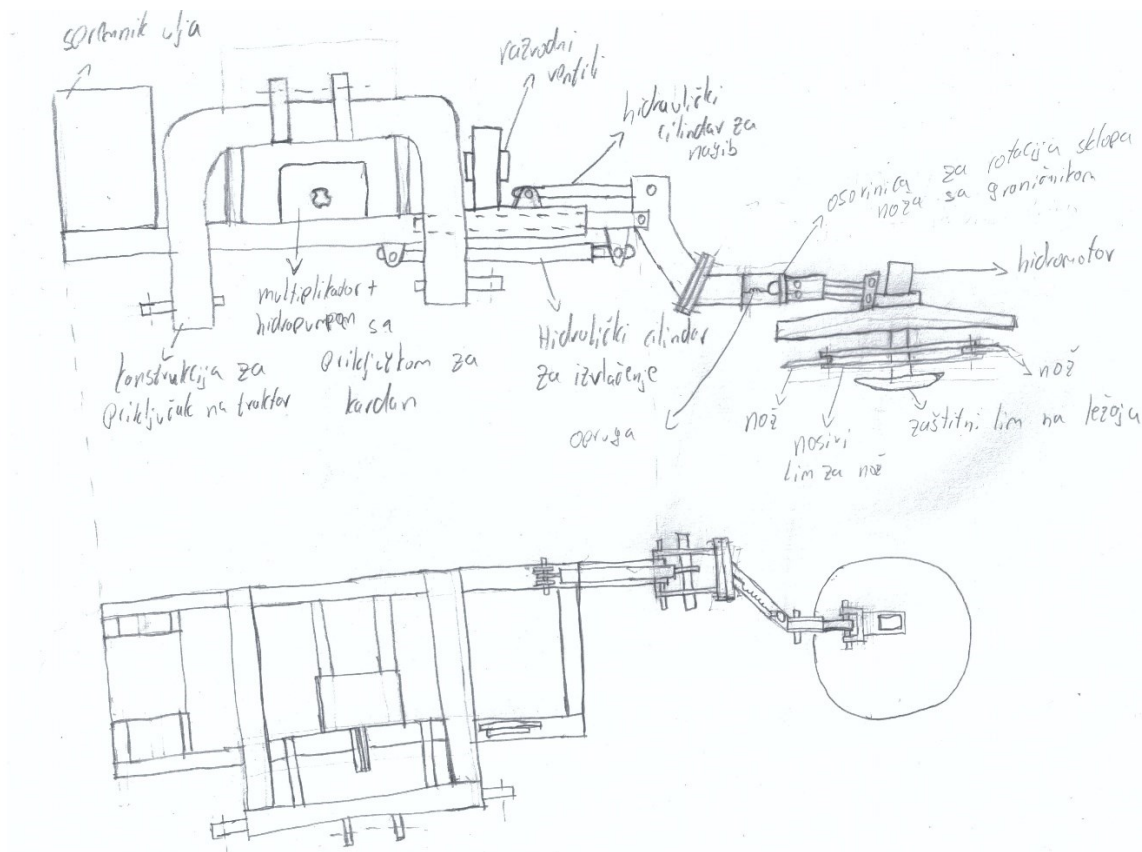 spremnik ulja
razvodni
ventili
hidraulički
cilindar za
nagib
osovinica za rotacija sklopa
noža sa graničnikom
hidromotor
multiplikador +
hidropumpom sa
priključkom za
kardan
konstrukcija za
priključak na traktor
Hidraulički cilindar
za izvlačenje
opruga
nož
nosivi
lim za nož
zaštitni lim na ležaju
nož